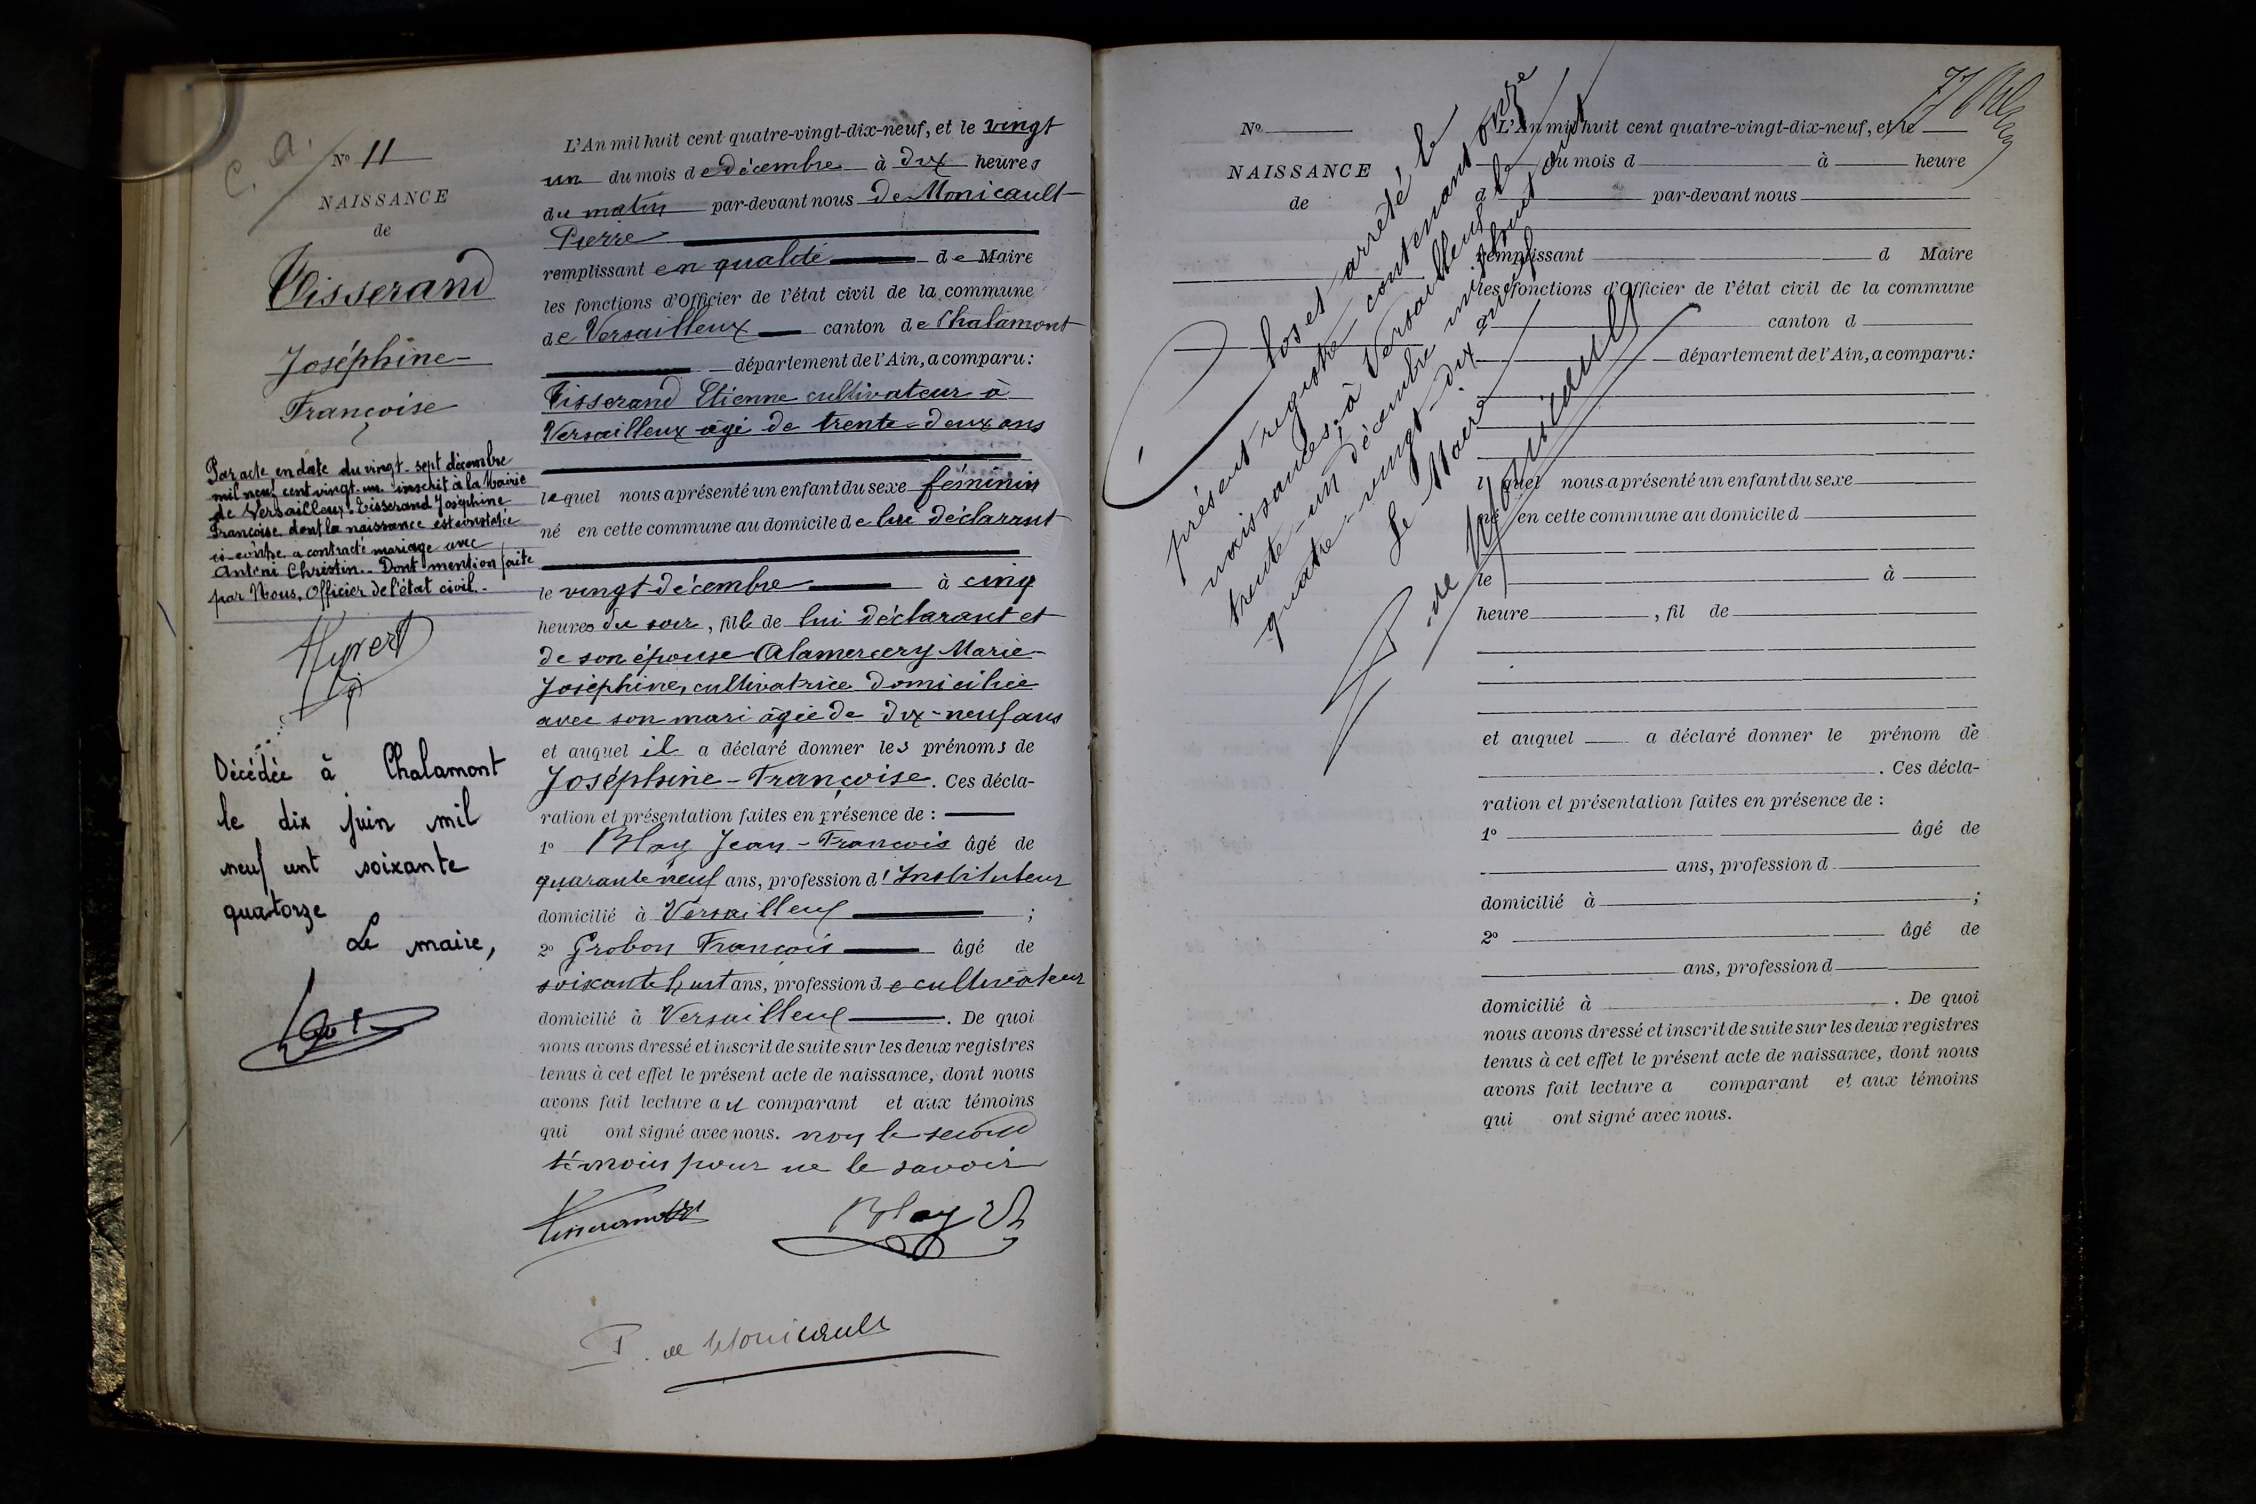 C. A.
Nº 11
NAISSANCE
de
Tisserand
Joséphine-
Françoise
Par acte en date du vingt-sept décembre
mil neuf cent vingt-un inscrit à la Mairie
de Versailleux Tisserand Joséphine
Françoise dont la naissance est constatée
ci-contre a contracté mariage avec
Antoni Christin. Dont mention faite
par Nous, Officier de l'état civil.-
Décédée à Chalamont
le dix juin mil
neuf cent soixante
quatorze
Le maire,
L'An mil huit cent quatre-vingt-dix-neuf, et le vingt
un du mois de décembre à dix heures
du matin par-devant nous de Monicault
Pierre
remplissant en qualité de Maire
les fonctions d'Officier de l'état civil de la commune
de Versailleux canton de Chalamont
département de l'Ain, a comparu:
Tisserand Etienne cultivateur à
Versailleux âgé de trente-deux ans
lequel nous a présenté un enfant du sexe féminin
né en cette commune au domicile de lui déclarant
le vingt décembre à cinq
heures du soir, fille de lui déclarant et
de son épouse Alamercery Marie-
Joséphine, cultivatrice domiciliée
avec son mari âgée de dix-neuf ans
et auquel il a déclaré donner les prénoms de
Joséphine-Françoise. Ces décla-
ration et présentation faites en présence de :
1º Blay Jean-François âgé de
quarante neuf ans, profession d'Instituteur
domicilié à Versailleux ;
2º Grobon François âgé de
soixante huit ans, profession de cultivateur
domicilié à Versailleux. De quoi
nous avons dressé et inscrit de suite sur les deux registres
tenus à cet effet le présent acte de naissance, dont nous
avons fait lecture au comparant et aux témoins
qui ont signé avec nous. non le second
témoin pour ne le savoir
Tisserand
Blay
P. de Monicault
Nº
NAISSANCE
de
Clos et arrêté le
présent registre contenant onze
naissances, à Versailleux le
trente-un décembre mil huit cent
quatre-vingt-dix neuf
Le Maire
P. de Monicault
L'An mil huit cent quatre-vingt-dix-neuf, et le
du mois d à heure
d par-devant nous
remplissant d Maire
les fonctions d'Officier de l'état civil de la commune
d canton d
département de l'Ain, a comparu:
l quel nous a présenté un enfant du sexe
né en cette commune au domicile d
le à
heure , fil de
et auquel a déclaré donner le prénom de
. Ces décla-
ration et présentation faites en présence de :
1º âgé de
ans, profession d
domicilié à ;
2º âgé de
ans, profession d
domicilié à . De quoi
nous avons dressé et inscrit de suite sur les deux registres
tenus à cet effet le présent acte de naissance, dont nous
avons fait lecture a comparant et aux témoins
qui ont signé avec nous.